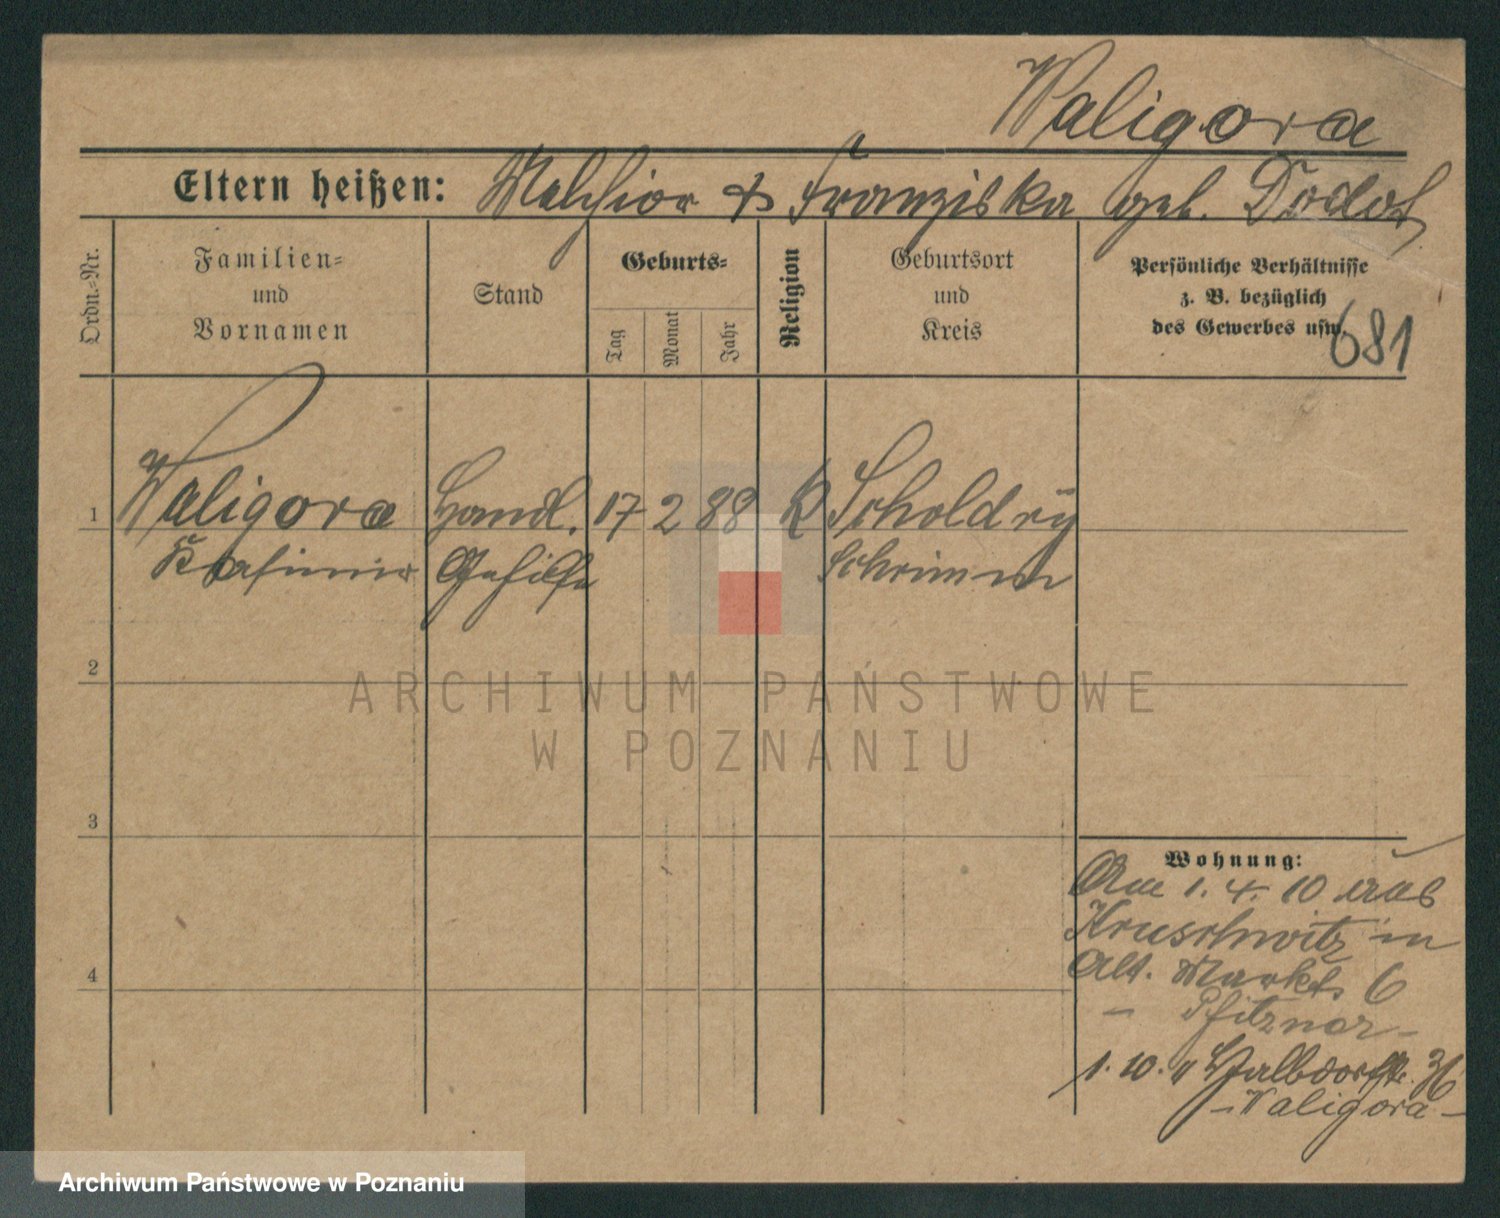 Waligora
Eltern heißen: Melchior & Franziska geb.
Ordn.-Nr.
Familien-
und
Vornamen
Stand
Geburts-
Tag
Monat
Jahr
Religion
Geburtsort
und
Kreis
Persönliche Verhältnisse
z. B. bezüglich
des Gewerbes usw.
681
1 Waligora Handl. 17 2 88 K Scholdry
Kasimir Gehilfe Schrimm
2
3
4
Wohnung:
Am 1. 4. 10 aus
Kruschwitz in
Alt. Markt 6
- Pfitzner -
1. 10. 11 Halbdorfstr. 36
- Waligora -
ARCHIWUM PAŃSTWOWE
W POZNANIU
Archiwum Państwowe w Poznaniu